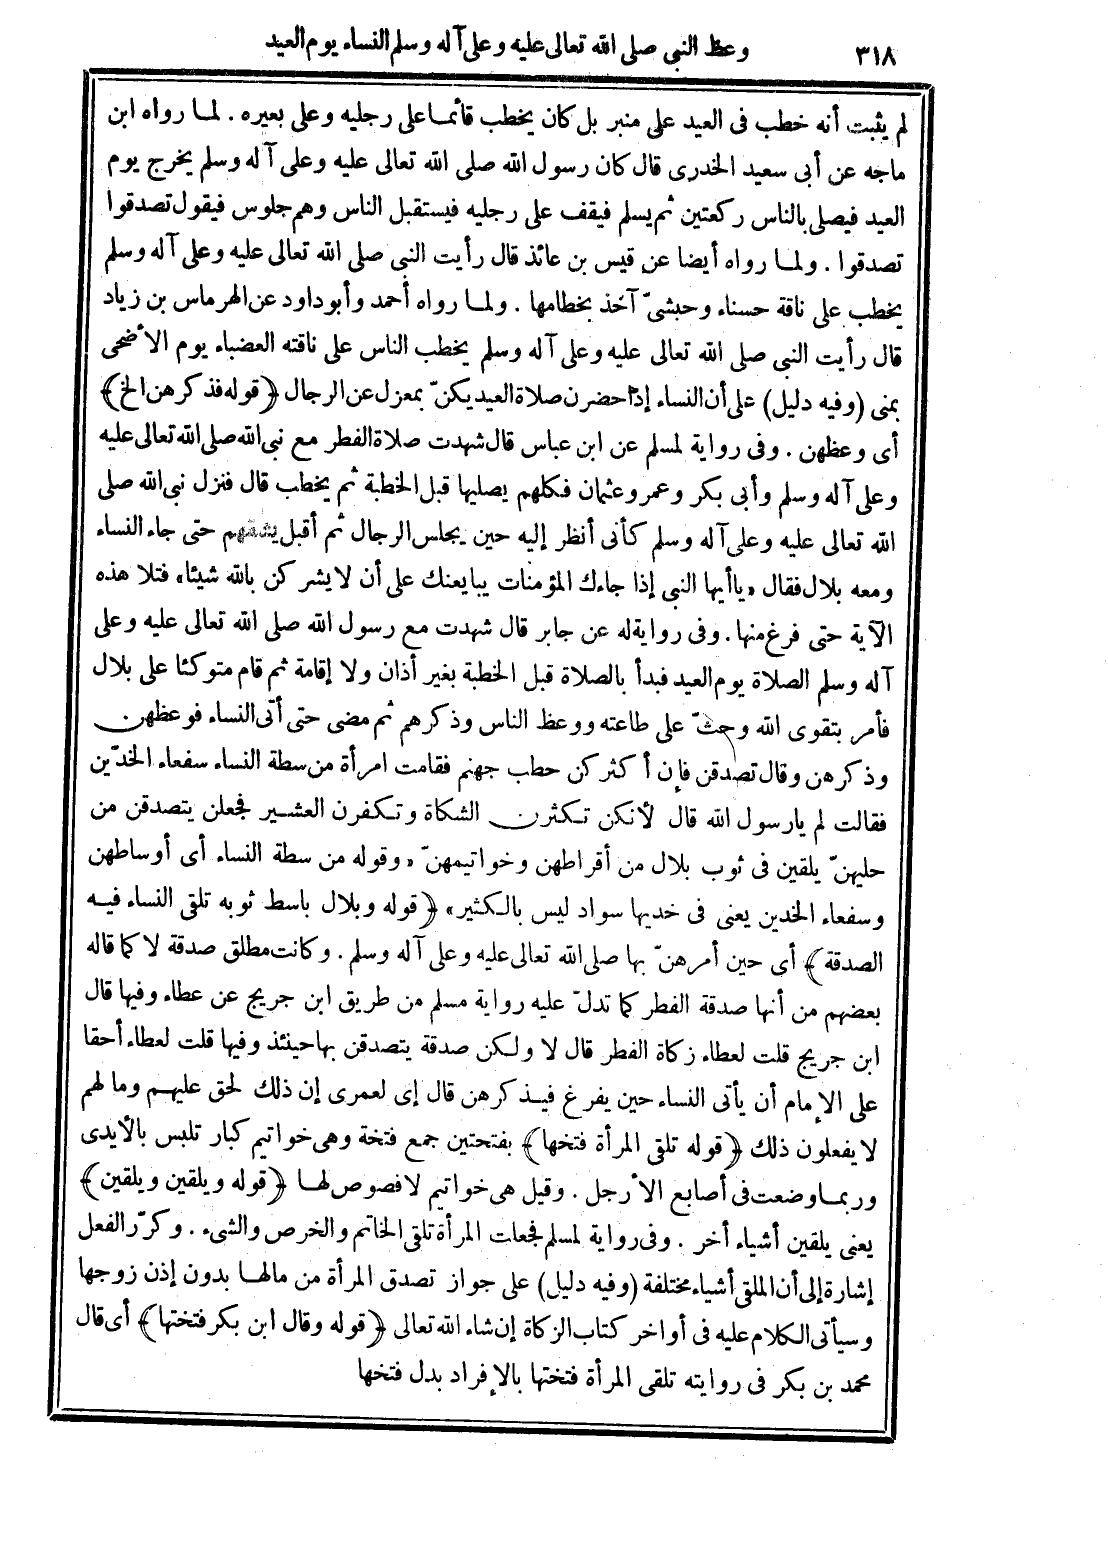 ٣١٨ وعظ النبى صلى الله تعالى عليه وعلى آله وسلم النساء يوم العيد
لم يثبت أنه خطب فى العيد على منبر بل كان يخطب قائما على رجليه وعلى بعيره . لما رواه ابن
ماجه عن أبى سعيد الخدرى قال كان رسول الله صلى الله تعالى عليه وعلى آله وسلم يخرج يوم
العيد فيصلى بالناس ركعتين ثم يسلم فيقف على رجليه فيستقبل الناس وهم جلوس فيقول تصدقوا
تصدقوا . ولما رواه أيضا عن قيس بن عائذ قال رأيت النبى صلى الله تعالى عليه وعلى آله وسلم
يخطب على ناقة حسناء وحبشىّ آخذ بخطامها . ولما رواه أحمد وأبو داود عن الهرماس بن زياد
قال رأيت النبى صلى الله تعالى عليه وعلى آله وسلم يخطب الناس على ناقته العضباء يوم الأضحى
بمنى (وفيه دليل) على أن النساء إذا حضرن صلاة العيد يكنّ بمعزل عن الرجال ﴿قوله فذكرهن الخ﴾
أى وعظهن . وفى رواية لمسلم عن ابن عباس قال شهدت صلاة الفطر مع نبى الله صلى الله تعالى عليه
وعلى آله وسلم وأبى بكر وعمر وعثمان فكلهم يصليها قبل الخطبة ثم يخطب قال فنزل نبى الله صلى
الله تعالى عليه وعلى آله وسلم كأنى أنظر إليه حين يجلس الرجال ثم أقبل يشقهم حتى جاء النساء
ومعه بلال فقال «ياأيها النبى إذا جاءك المؤمنات يبايعنك على أن لا يشركن بالله شيئا» فتلا هذه
الآية حتى فرغ منها . وفى رواية له عن جابر قال شهدت مع رسول الله صلى الله تعالى عليه وعلى
آله وسلم الصلاة يوم العيد فبدأ بالصلاة قبل الخطبة بغير أذان ولا إقامة ثم قام متوكئا على بلال
فأمر بتقوى الله وحثّ على طاعته ووعظ الناس وذكرهم ثم مضى حتى أتى النساء فوعظهن
وذكرهن وقال تصدقن فإن أكثركن حطب جهنم فقامت امرأة من سطة النساء سفعاء الخدّين
فقالت لم يارسول الله قال لأنكن تكثرن الشكاة وتكفرن العشير فجعلن يتصدقن من
حليهنّ يلقين فى ثوب بلال من أقراطهن وخواتيمهنّ «وقوله من سطة النساء أى أوساطهن
وسفعاء الخدين يعنى فى خديها سواد ليس بالكثير» ﴿قوله وبلال باسط ثوبه تلقى النساء فيه
الصدقة﴾ أى حين أمرهنّ بها صلى الله تعالى عليه وعلى آله وسلم . وكانت مطلق صدقة لا كما قاله
بعضهم من أنها صدقة الفطر كما تدلّ عليه رواية مسلم من طريق ابن جريج عن عطاء وفيها قال
ابن جريج قلت لعطاء زكاة الفطر قال لا ولكن صدقة يتصدقن بها حينئذ وفيها قلت لعطاء أحقا
على الإمام أن يأتى النساء حين يفرغ فيذكرهن قال إى لعمرى إن ذلك لحق عليهم وما لهم
لا يفعلون ذلك ﴿قوله تلقى المرأة فتخها﴾ بفتحتين جمع فتخة وهى خواتيم كبار تلبس بالأيدى
وربما وضعت فى أصابع الأرجل . وقيل هى خواتيم لا فصوص لها ﴿قوله ويلقين ويلقين﴾
يعنى يلقين أشياء أخر . وفى رواية لمسلم فجعلت المرأة تلقى الخاتم والخرص والشىء . وكرّر الفعل
إشارة إلى أن الملقى أشياء مختلفة (وفيه دليل) على جواز تصدق المرأة من مالها بدون إذن زوجها
وسيأتى الكلام عليه فى أواخر كتاب الزكاة إن شاء الله تعالى ﴿قوله وقال ابن بكر فتختها﴾ أى قال
محمد بن بكر فى روايته تلقى المرأة فتختها بالإفراد بدل فتخها